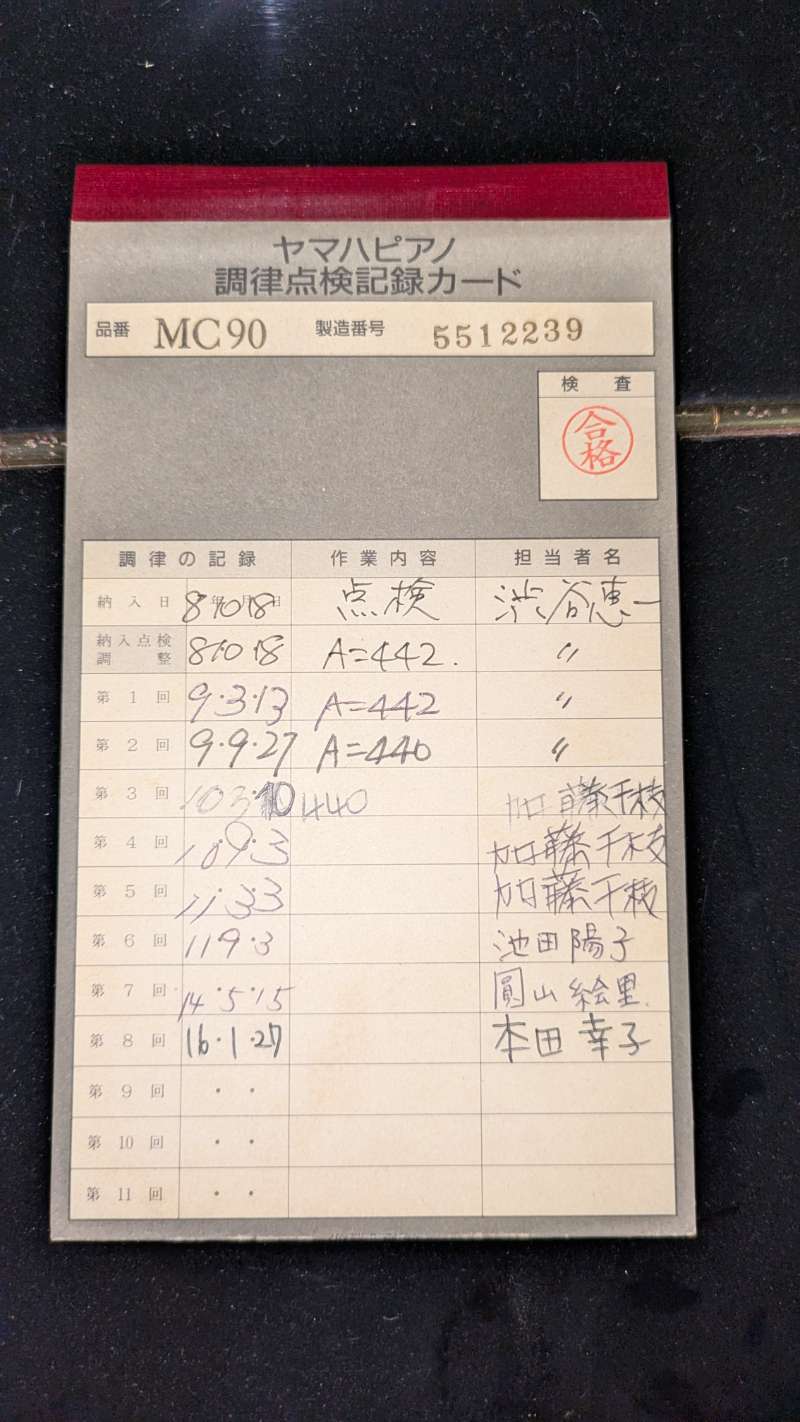 ヤマハピアノ
調律点検記録カード
品番 MC90 製造番号 5512239
検査
合格
調律の記録 作業内容 担当者名
納入日 8・10・18 点検 渋谷恵一
納入点検調整 8・10・18 A=442. 〃
第1回 9・3・13 A=442 〃
第2回 9・9・27 A=440 〃
第3回 10・3・10 440 加藤千枝
第4回 10・9・3 加藤千枝
第5回 11・3・3 加藤千枝
第6回 11・9・3 池田陽子
第7回 14・5・15 圓山絵里
第8回 16・1・27 本田幸子
第9回 ・ ・
第10回 ・ ・
第11回 ・ ・